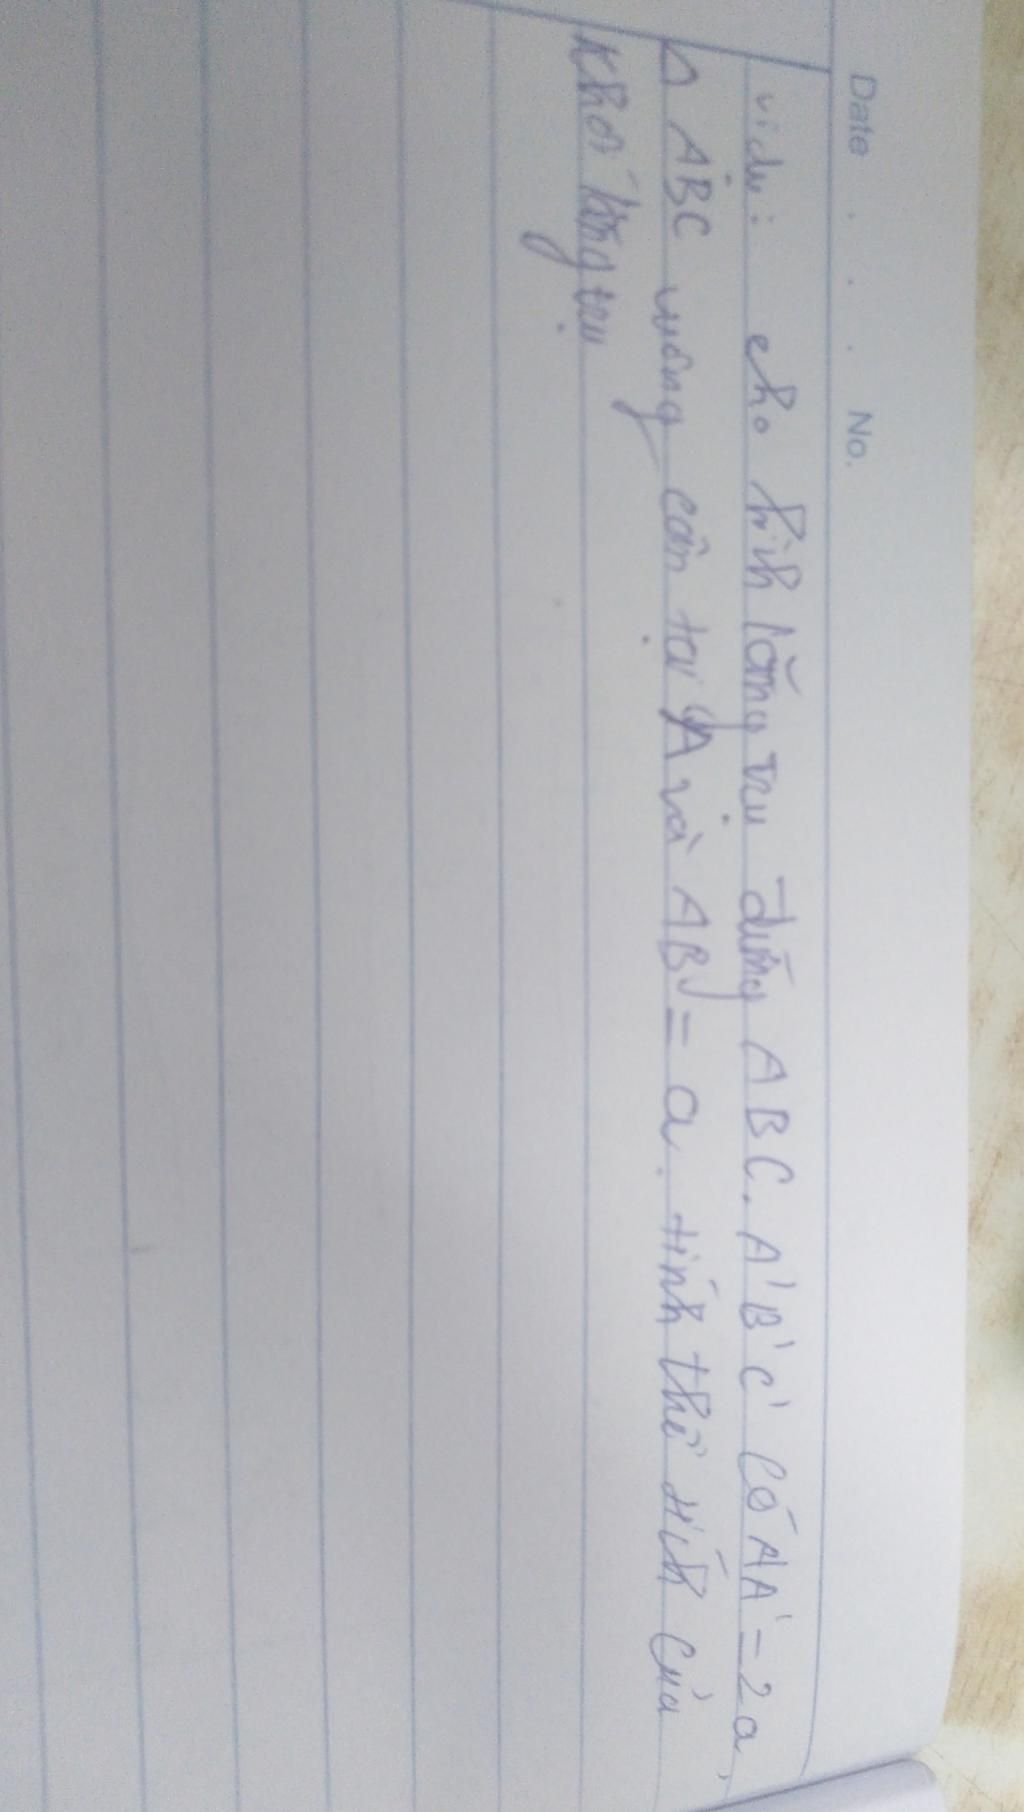 Date . . . No.
ví dụ: cho hình lăng trụ đứng ABC.A'B'C' có AA' = 2a,
Δ ABC vuông cân tại A và AB = a. tính thể tích của
khối lăng trụ